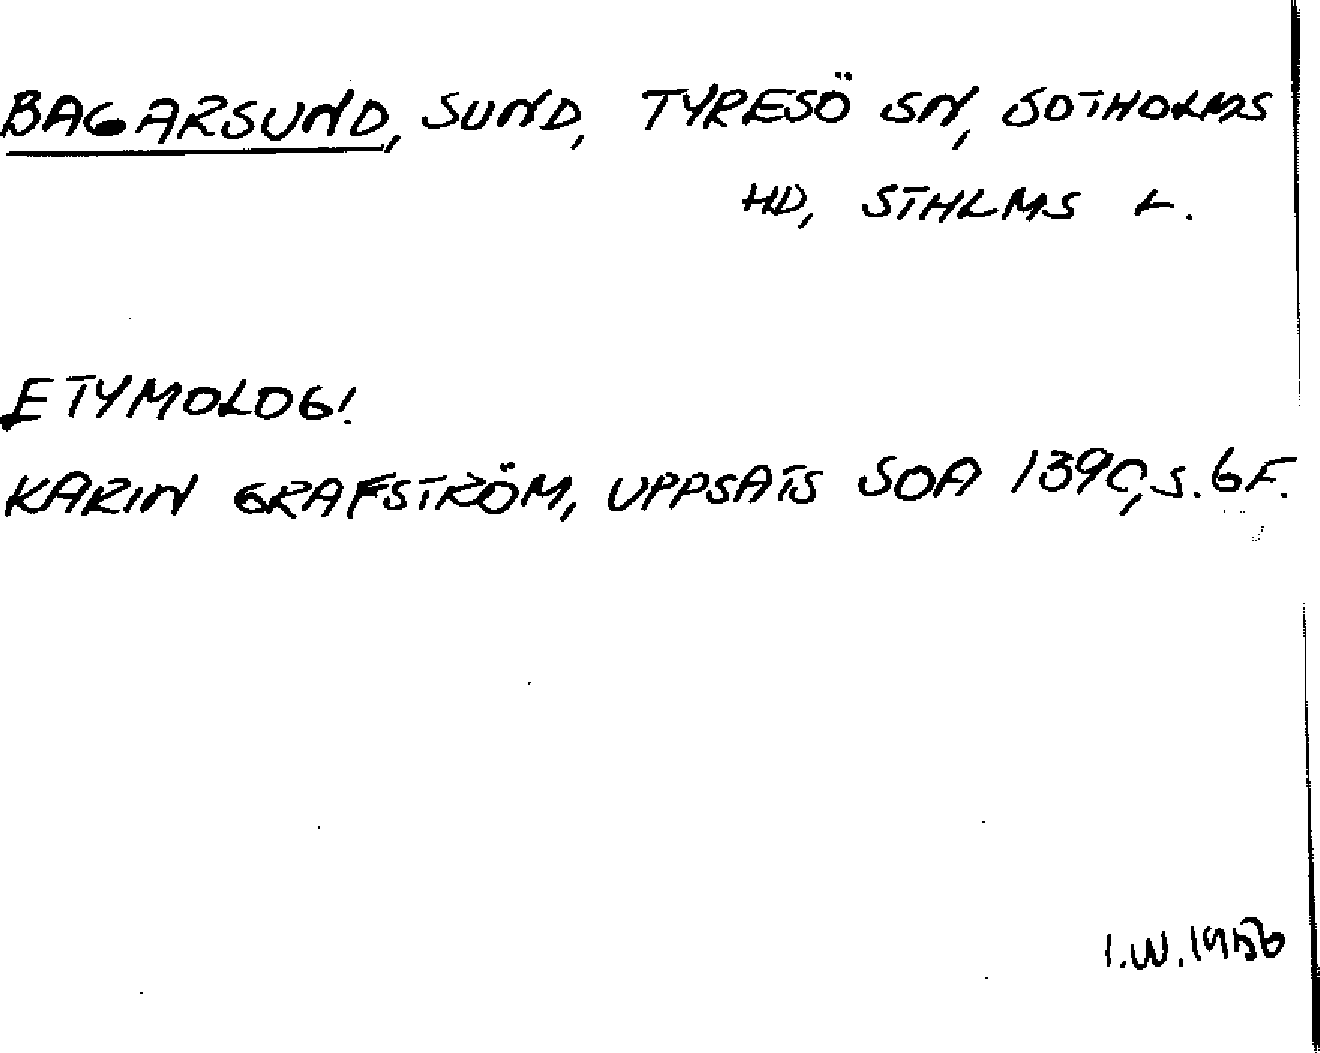 BAGARSUND, SUND, TYRESÖ SN, SOTHOLMS
HD, STHLMS L.
ETYMOLOGI
KARIN GRAFSTRÖM, UPPSATS SOA 1390, S. 6 F.
I.W. 1956